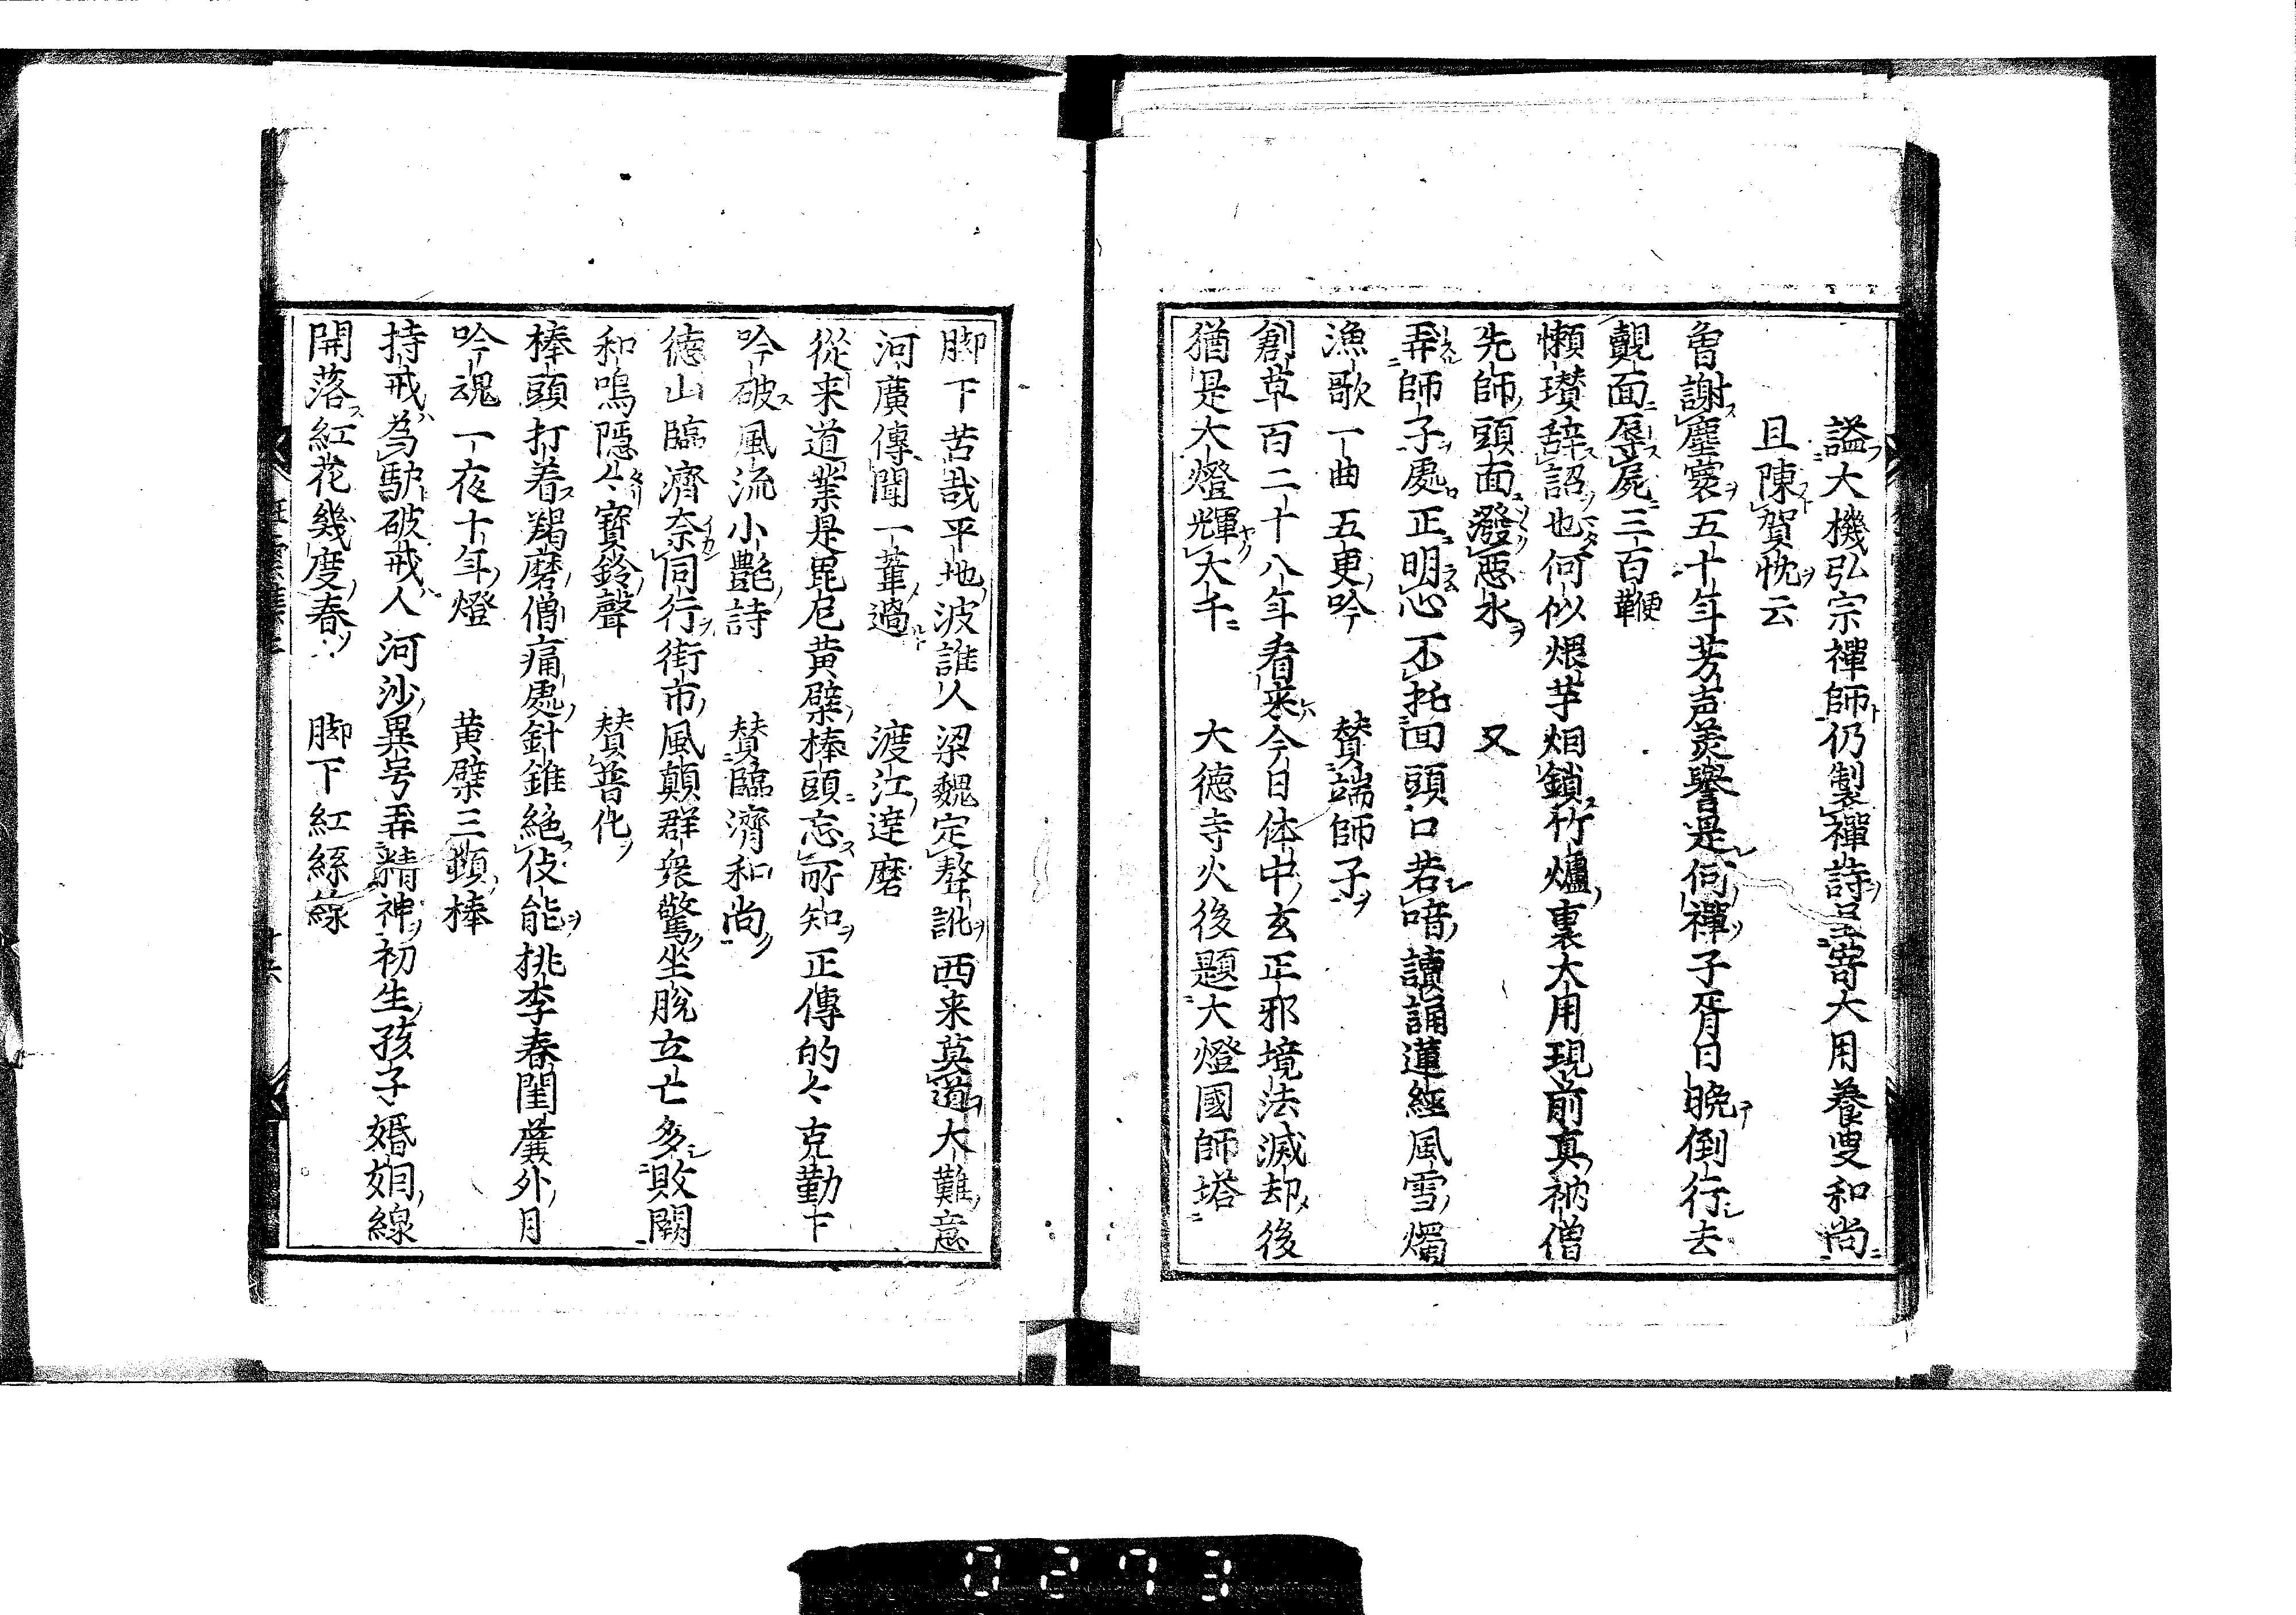 諡大機弘宗禪師仍製禪詩呈寄大用養叟和尚
且陳賀忱云
魯謝塵寰五十年芳声美譽是何禪子胥日晩倒行去
覿面辱屍三百鞭
懶瓚辞詔也何似煨芋烟鎖竹爐裏大用現前真衲僧
先師頭面潑惡水　又
弄師子處正明心不托面頭口若喑讀誦蓮經風雪燭
漁歌一曲五更吟　賛端師子
創草百二十八年看来今日体中玄正邪境法滅却後
猶是大燈輝大千　大德寺火後題大燈國師塔
脚下苦哉平地波誰人梁魏定聱訛西来莫道大難意
河廣傳聞一葦過　渡江達磨
從来道業是毘尼黄檗棒頭忘所知正傳的々克勤下
吟破風流小艷詩　賛臨濟和尚
德山臨濟奈同行街市風顛群衆驚坐脫立亡多敗闕
和鳴隱々寶鈴聲　賛普化
棒頭打着羯磨僧痛處針錐絶伎能桃李春閨簾外月
吟魂一夜十年燈　黄檗三頓棒
持戒為驢破戒人河沙異号弄精神初生孩子婚姻線
開落紅花幾度春　脚下紅絲線
十六
0273